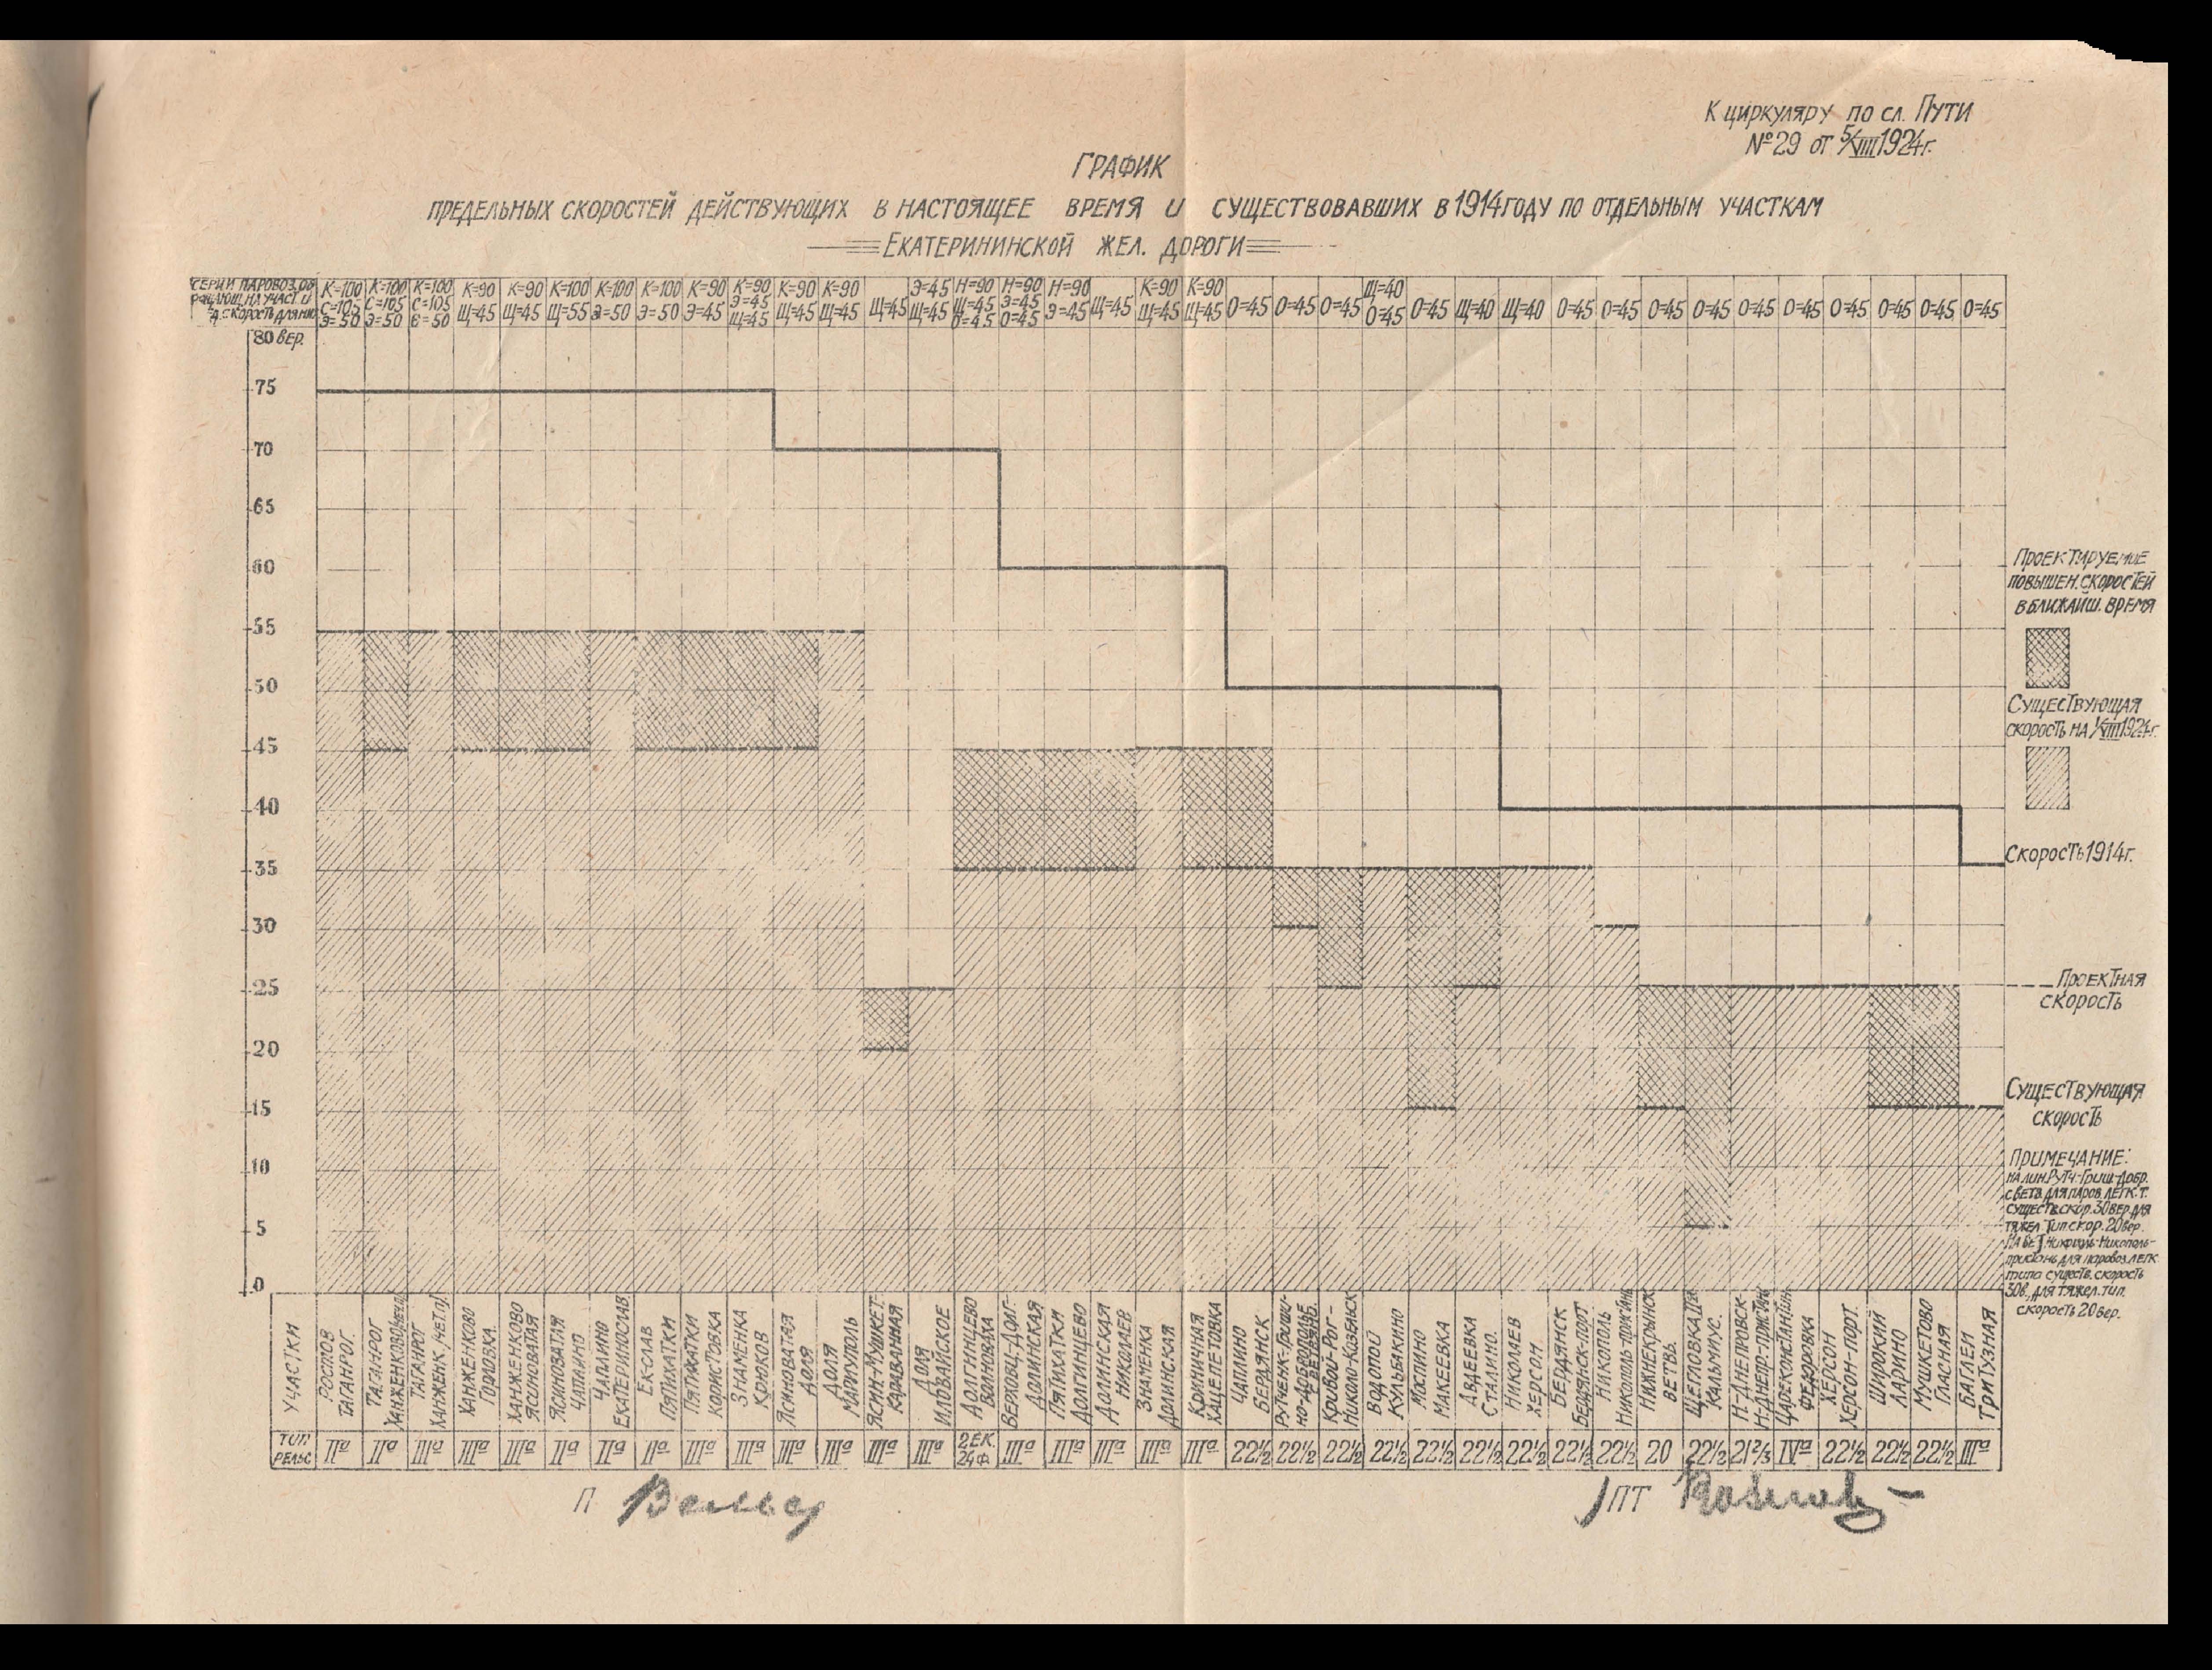 К циркуляру по сл. Пути
№29 от 5/VIII 1924г.
График
предельных скоростей действующих в настоящее время и существовавших в 1914 году по отдельным участкам
Екатерининской жел. дороги
Серии паровоз. об
ращающ. на участ. и
скорость для них
К=100 С=105 Э=50
К=100 С=105 Э=50
К=100 С=105 50
К=90 Щ=45
К=90 Щ=45
К=100 Щ=55
К=100 Э=50
К=100 Э=50
К=90 Э=45
К=90 Э=45 Щ=45
К=90 Щ=45
К=90 Щ=45
Щ=45
Э=45 Щ=45
Н=90 Щ=45 О=45
Н=90 Э=45 О=45
Н=90 Э=45
Щ=45
К=90 Щ=45
К=90 Щ=45
О=45
О=45
О=45
Щ=40 О=45
О=45
Щ=40
Щ=40
О=45
О=45
О=45
О=45
О=45
О=45
О=45
О=45
О=45
О=45
80 вер.
75
70
65
60
55
50
45
40
35
30
25
20
15
10
5
0
Проектируемые
повышен. скоростей
в ближайш. время
Существующая
скорость на 1/VIII 1924г.
Скорость 1914г.
Проектная
скорость
Существующая
скорость
Примечание:
на лин. Рутч-Гриш-Добр.
света для паров. легк. т.
существ. скор. 30 вер. для
тяжел. тип скор. 20 вер.
На вет. Никополь-
пристань для паровоз. легк
типа существ. скорость
30в., для тяжел. тип.
скорость 20 вер.
Участки
Ростов Таганрог.
Таганрог Ханженково
Таганрог Ханженк. /нет.п/
Ханженково Горловка
Ханженково Ясиноватая
Ясиноватая Чаплино
Чаплино Екатеринослав
Ек-слав Пятихатки
Пятихатки Користовка
Знаменка Крюков
Ясиноватая Доля
Доля Мариуполь
Ясин.-Мушкет. Караванная
Доля Иловайское
Долгинцево Волноваха
Верховц-Долг- Долинская
Пятихатки Долгинцево
Долинская Николаев
Знаменка Долинская
Криничная Хацепетовка
Чаплино Бердянск
Рутченк-Гриши- но-Доброполье
Кривой-Рог- Николо-Козельск
Водопой Кульбакино
Моспино Макеевка
Авдеевка Сталино.
Николаев Херсон
Бердянск Бердянск-порт
Никополь Никополь-пристань
Нижнекрынск ветвь.
Щегловка Кальмиус.
Н-Днепровск- Н-Днепр-пристань
Царекон​стантин. Федоровка
Херсон Херсон-порт.
Широкий Ларино
Мушкетово Гласная
Баглей Тритузная
Тип
рельс
IIа IIа IIIа IIIа IIIа IIа IIа IIа IIIа IIIа IIIа IIIа IIIа IIIа 2 ЕК. 24ф. IIIа IIIа IIIа IIIа IIIа 22½ 22½ 22½ 22½ 22½ 22½ 22½ 22½ 22½ 20 22½ 21⅔ IVа 22½ 22½ 22½ IIIа
П
ПТ